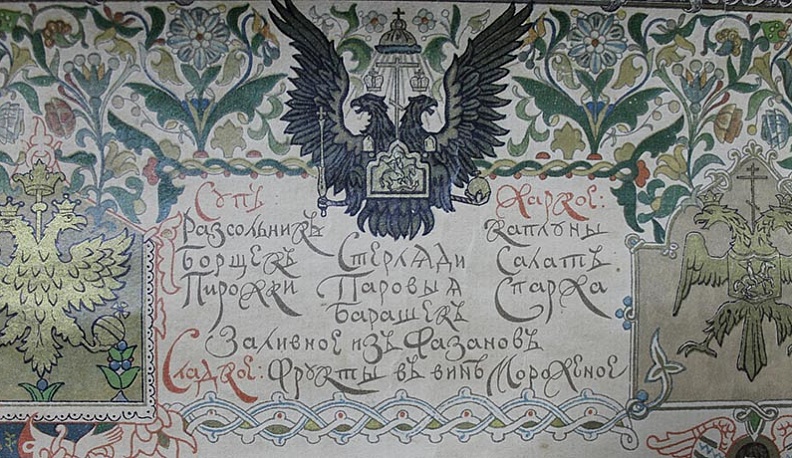 Супъ:
Разсольникъ
Борщекъ
Пирожки
Стерляди
Паровыя
Барашекъ
Жаркое:
Каплуны
Салатъ
Спаржа
Заливное изъ Фазановъ
Сладкое: Фрукты въ винѣ Мороженое